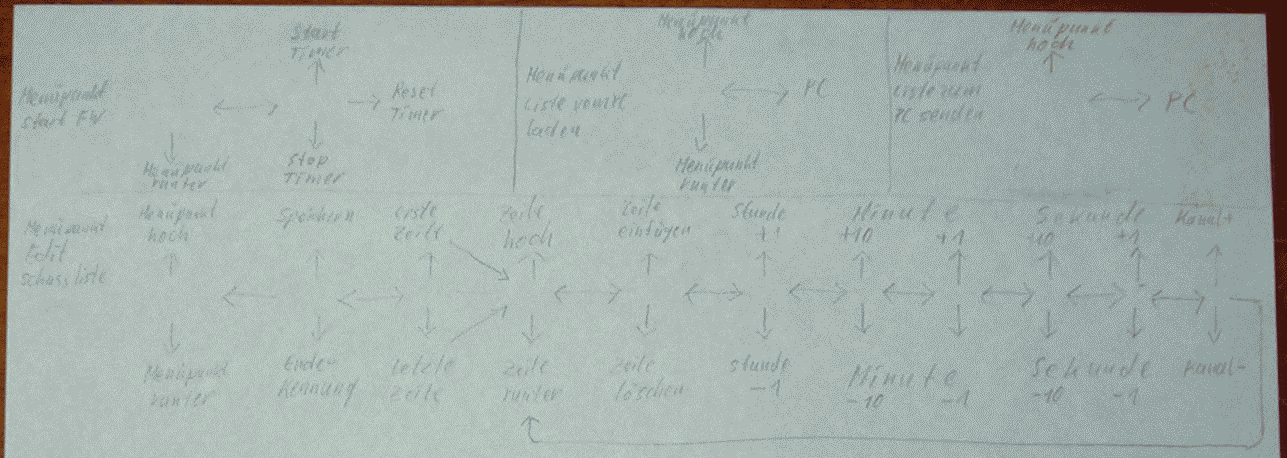 Menüpunkt
start FW
Start
Timer
Reset
Timer
Menüpunkt
runter
Stop
Timer
Menüpunkt
Liste vom PC
laden
Menüpunkt
hoch
PC
Menüpunkt
runter
Menüpunkt
Liste zum
PC senden
Menüpunkt
hoch
PC
Menüpunkt
Edit
schussliste
Menüpunkt
hoch
Speichern
erste
Zeile
Zeile
hoch
Zeile
einfügen
Stunde
+1
Minute
+10 +1
Sekunde
+10 +1
Kanal+
Menüpunkt
runter
Ende-
Kennung
letzte
Zeile
Zeile
runter
Zeile
löschen
Stunde
-1
Minute
-10 -1
Sekunde
-10 -1
Kanal-